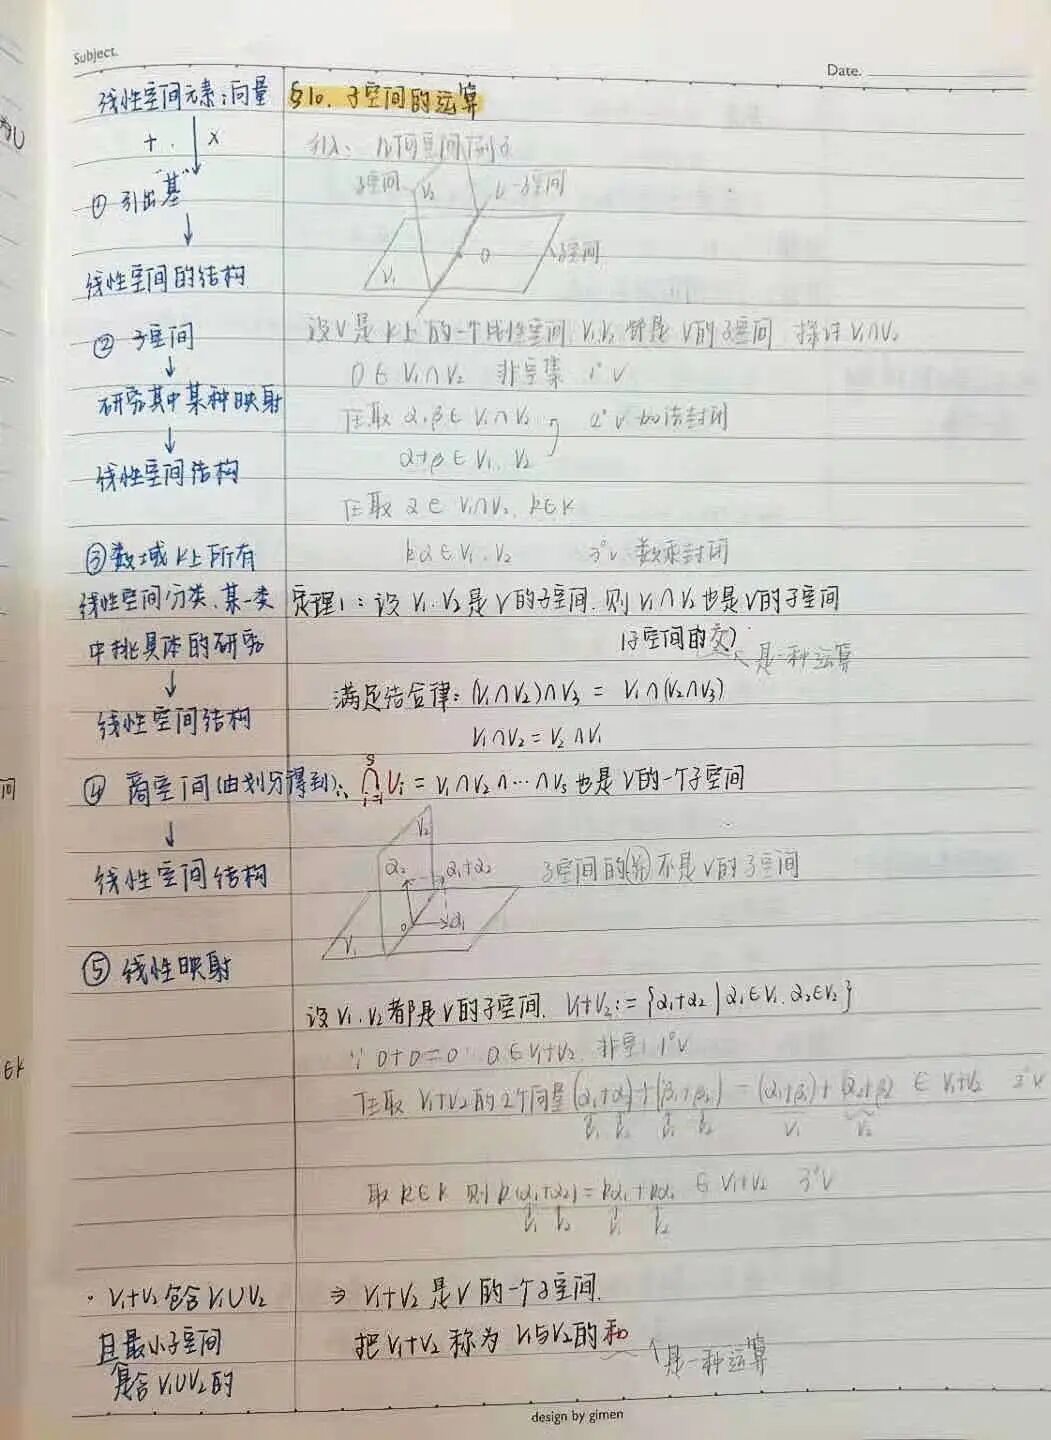 Subject.
Date.
线性空间元素:向量
+ . | ×
① 引出"基"
线性空间的结构
② 子空间
研究其中某种映射
线性空间结构
③ 数域K上所有
线性空间分类、某一类
中挑具体的研究
线性空间结构
④ 商空间(由划分得到)
线性空间结构
⑤ 线性映射
· V₁+V₂ 包含 V₁∪V₂
且最小子空间
包含 V₁∪V₂的
§10. 子空间的运算
引入: 几何空间
子空间 V₂ 子空间
0 子空间
V₁
设V是K上的一个线性空间 V₁,V₂都是V的子空间 探讨 V₁∩V₂
0∈V₁∩V₂ 非空集 1°√
任取 α,β∈V₁∩V₂ 2°√ 加法封闭
α+β∈V₁,V₂
任取 α∈V₁∩V₂, k∈K
kα∈V₁,V₂ 3°√ 数乘封闭
定理1:设 V₁,V₂是V的子空间.则 V₁∩V₂也是V的子空间
(子空间的交) 是一种运算
满足结合律:(V₁∩V₂)∩V₃ = V₁∩(V₂∩V₃)
V₁∩V₂=V₂∩V₁
∴ ⋂ᵢ₌₁ˢ Vᵢ = V₁∩V₂∩…∩Vₛ 也是V的一个子空间
V₂
α₂ α₁+α₂ 子空间的(并)不是V的子空间
0 α₁
V₁
设V₁,V₂都是V的子空间. V₁+V₂:={α₁+α₂ | α₁∈V₁, α₂∈V₂}
∵ 0+0=0 0∈V₁+V₂ 非空 1°√
任取 V₁+V₂的2个向量(α₁+α₂)+(β₁+β₂) = (α₁+β₁)+(α₂+β₂) ∈ V₁+V₂ 2°√
V₁ V₂ V₁ V₂ V₁ V₂
取 k∈K 则 k(α₁+α₂)=kα₁+kα₂ ∈ V₁+V₂ 3°√
V₁ V₂ V₁ V₂
⇒ V₁+V₂是V的一个子空间.
把V₁+V₂称为 V₁与V₂的和 是一种运算
design by gimen